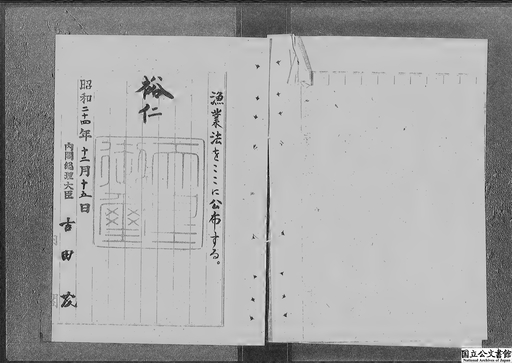 漁業法をここに公布する。
裕仁
天皇御璽
昭和二十四年十二月十五日
内閣総理大臣 吉田茂
国立公文書館
National Archives of Japan